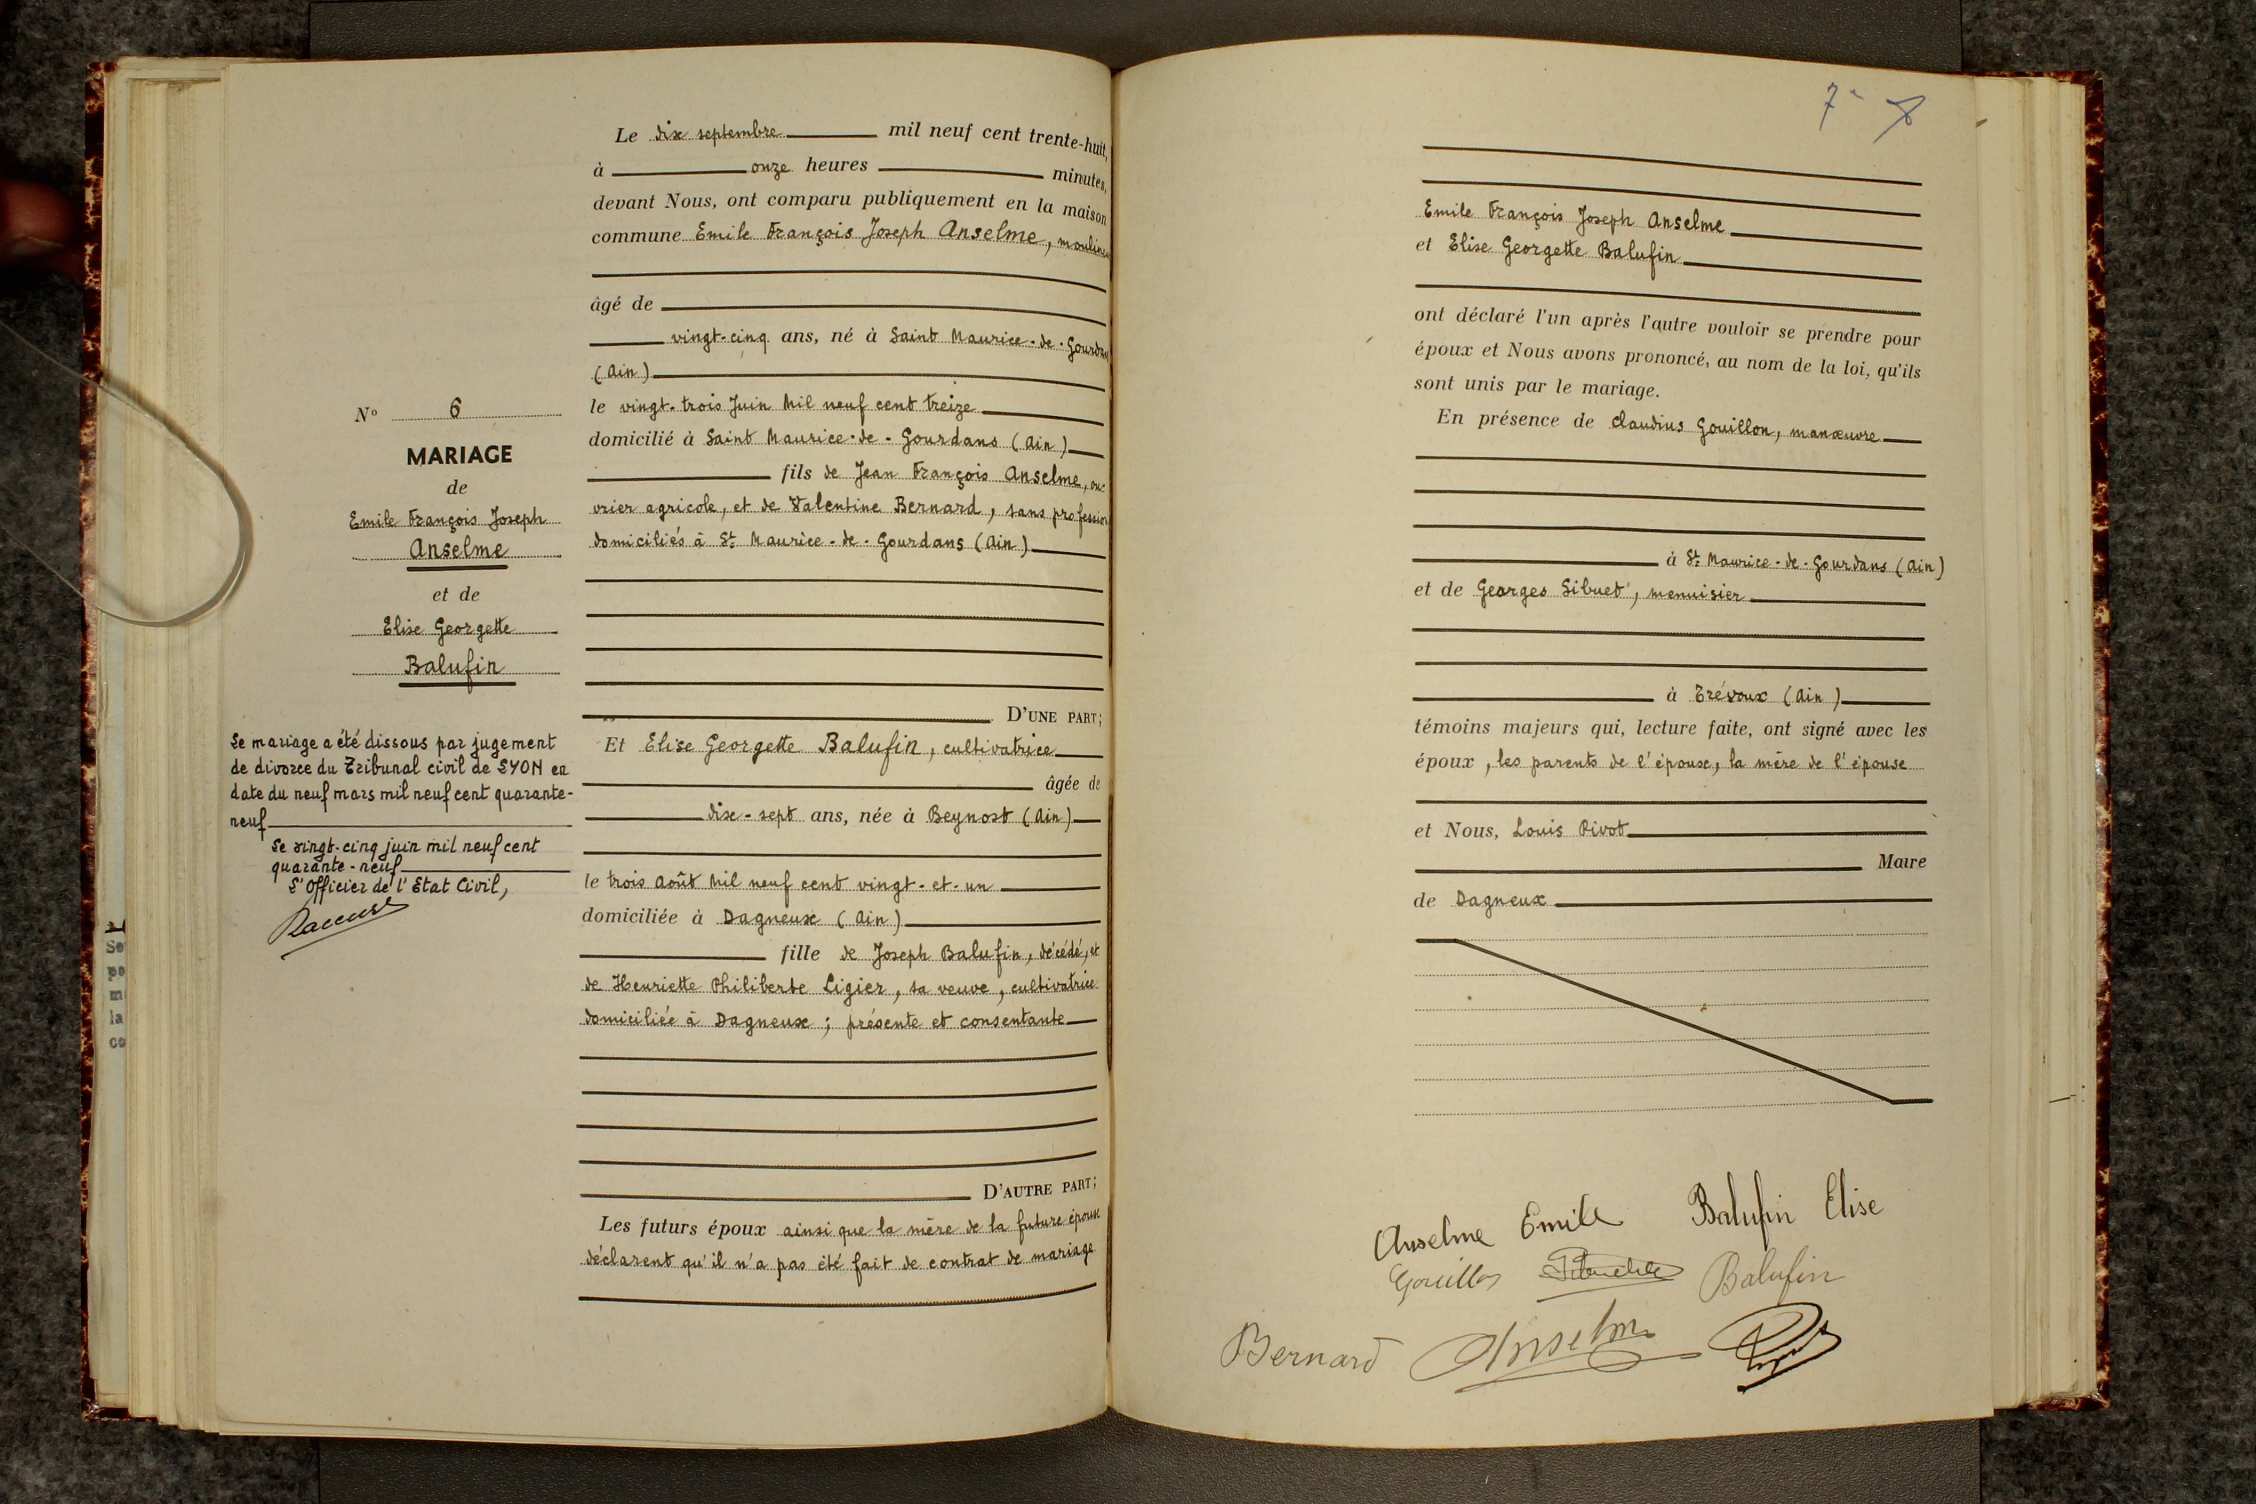 N° 6
MARIAGE
de
Emile François Joseph
Anselme
et de
Elise Georgette
Balufin
Le mariage a été dissous par jugement
de divorce du Tribunal civil de LYON en
date du neuf mars mil neuf cent quarante-
neuf
Le vingt-cinq juin mil neuf cent
quarante-neuf
L'Officier de l'Etat Civil,
Le dix septembre mil neuf cent trente-huit,
à onze heures minutes,
devant Nous, ont comparu publiquement en la maison
commune Emile François Joseph Anselme,
âgé de
vingt-cinq ans, né à Saint Maurice-de-Gourdans
(Ain)
le vingt-trois Juin Mil neuf cent treize
domicilié à Saint Maurice-de-Gourdans (Ain)
fils de Jean François Anselme, ou-
vrier agricole, et de Valentine Bernard, sans profession
domiciliés à St Maurice-de-Gourdans (Ain)
D'UNE PART;
Et Elise Georgette Balufin, cultivatrice
âgée de
dix-sept ans, née à Beynost (Ain)
le trois Août Mil neuf cent vingt-et-un
domiciliée à Dagneux (Ain)
fille de Joseph Balufin, décédé, et
de Henriette Philiberte Ligier, sa veuve, cultivatrice
domiciliée à Dagneux; présente et consentante
D'AUTRE PART;
Les futurs époux ainsi que la mère de la future épouse
déclarent qu'il n'a pas été fait de contrat de mariage
7
Emile François Joseph Anselme
et Elise Georgette Balufin
ont déclaré l'un après l'autre vouloir se prendre pour
époux et Nous avons prononcé, au nom de la loi, qu'ils
sont unis par le mariage.
En présence de Claudius Gouillon, manœuvre
à St Maurice-de-Gourdans (Ain)
et de Georges Sibuet, menuisier
à Trévoux (Ain)
témoins majeurs qui, lecture faite, ont signé avec les
époux, les parents de l'épouse, la mère de l'épouse
et Nous, Louis Pivot
Maire
de Dagneux
Anselme Emile Balufin Elise
Gouillon Balufin
Bernard Anselme